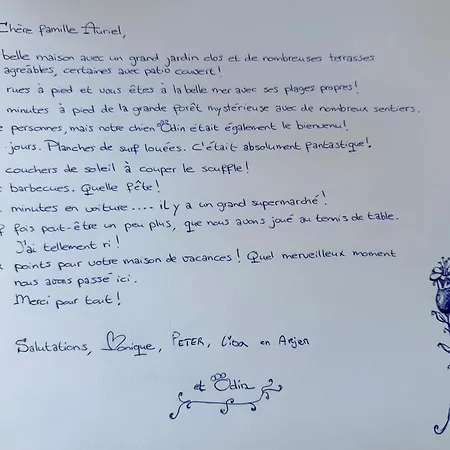 Chère famille Auriel,
belle maison avec un grand jardin clos et de nombreuses terrasses
agréables, certaines avec patio couvert!
rues à pied et vous êtes à la belle mer avec ses plages propres!
minutes à pied de la grande forêt mystérieuse avec de nombreux sentiers.
personnes, mais notre chien Odin était également le bienvenu!
jours. Planches de surf louées. C'était absolument fantastique!
couchers de soleil à couper le souffle!
barbecues. Quelle fête!
minutes en voiture.... il y a un grand supermarché!
fois peut-être un peu plus, que nous avons joué au tennis de table.
J'ai tellement ri!
points pour votre maison de vacances! Quel merveilleux moment
nous avons passé ici.
Merci pour tout!
Salutations, Monique, PETER, Lisa en Arjen
et Odin